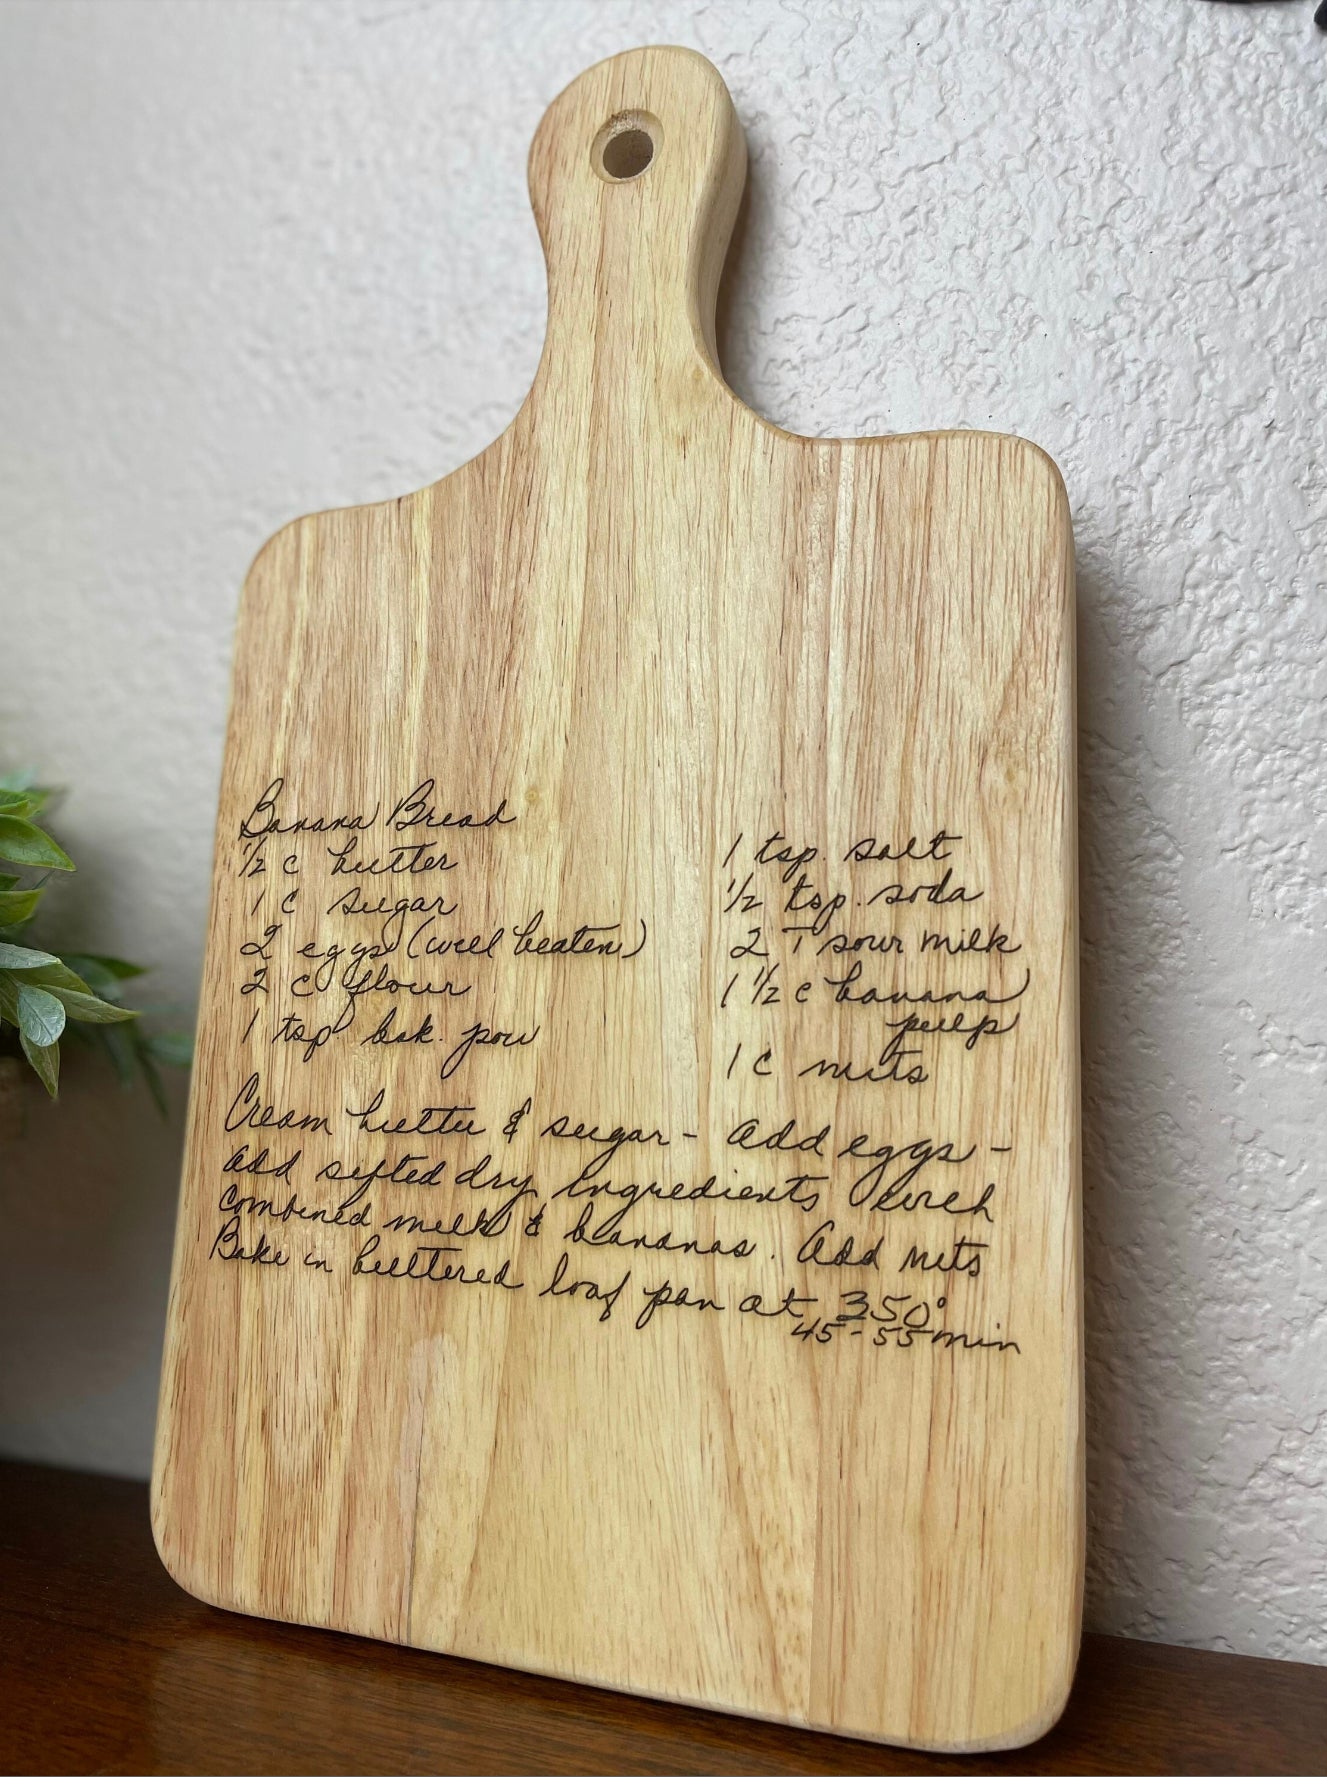 Banana Bread
1/2 c butter
1 c sugar
2 eggs (well beaten)
2 c flour
1 tsp bak. pow
1 tsp. salt
1/2 tsp. soda
2 T sour milk
1 1/2 c banana
pulp
1 c nuts
Cream butter & sugar - Add eggs -
Add sifted dry ingredients with
combined milk & bananas. Add nuts
Bake in buttered loaf pan at 350°
45-55 min